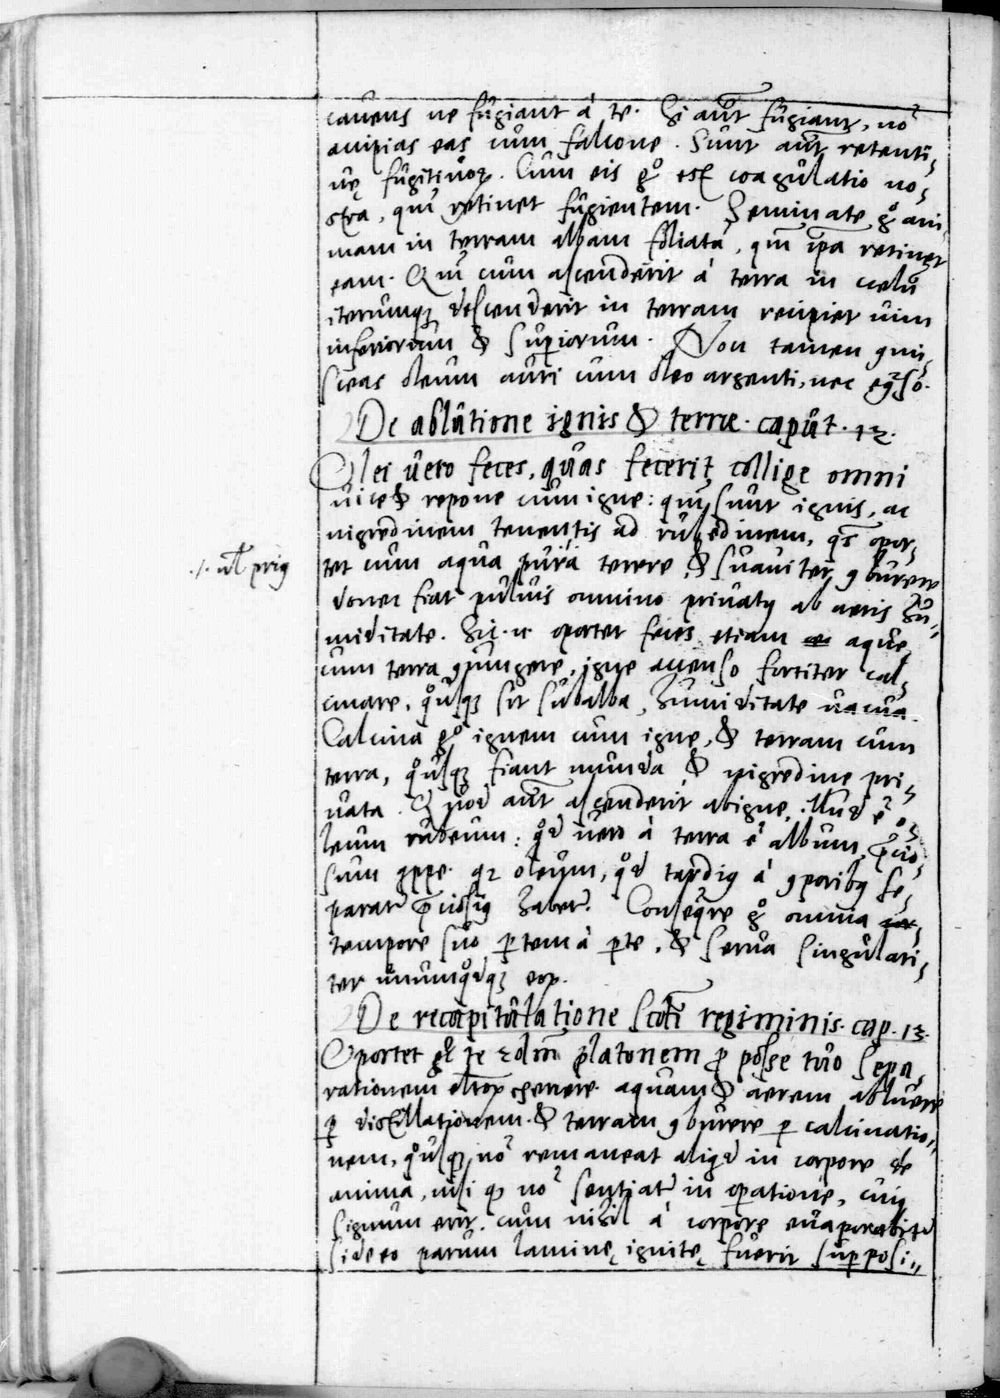 cavens ne fugiant à te. Si aūt fugiant, nō
accipias eas cum falcone. Sunt aūt retenti-
ue fugitiuoꝝ. Cum eis gͦ est coagulatio no-
stra, qm̄ retinet fugientem. Seminate gͦ ani-
mam in terram albam foliatā, qm̄ ip̄a retinet
eam. Qm̄ cum ascenderit à terra in celū
iterumqꝫ descenderit in terram recipiet uim
inferiorum & supiorum. Non tamen ꝯmi-
sceas oleum auri cum oleo argenti, nec eqͣso.
De ablutione ignis & terrae. caput. 12.
Olei uero feces, quas fecerit collige omni
uice & repone cum igne: qm̄ sunt ignis, ac
nigredinem tenentis ad rubedinem, qs̄ opor-
tet cum aqua pura terere, & suauiter ꝯburere
./. ul̄ prig
donec fiat puluis omnino priuatꝰ ab aeris hu-
miditate. Sic. n. oportet feces etiam aque
cum terra ꝯiungere, igne accenso fortiter cal-
cinare, qͦusqꝫ sit subalba, humiditate uacua.
Calcina gͦ ignem cum igne, & terram cum
terra, qͦusqꝫ fiant munda & nigredine pri-
uata. Quod aūt ascenderit ab igne, illud ē o-
leum rubeum: qͦd uero à terra ē album, p̄cio-
sum ꝓpe. qꝫ oleum, qͦd tardiꝰ à ꝯporibꝰ se-
paratr̄ p̄ciosiꝰ habetr̄. Conseqͣre gͦ omnia
tempore suo ꝑtem à ꝑte, & serua singulari-
ter unumqͦdqꝫ eoꝝ.
De recapitulatione scdi regiminis. cap. 13.
Oportet gͦ te sdm̄ platonem ꝓ posse tuo sepa-
rationem eltoꝝ querere aquam & aerem abluere
ꝑ distillationem. & terram ꝯburere ꝑ calcinatio-
nem, qͦusqꝫ nō remaneat aliqͥd in corpore de
anima, nisi qꝫ nō sentiatr̄ in oꝑatione, cuiꝰ
signum erit, cum nihil à corpore euaporabitr̄
si de eo parum lamine ignite fuerit supposi-